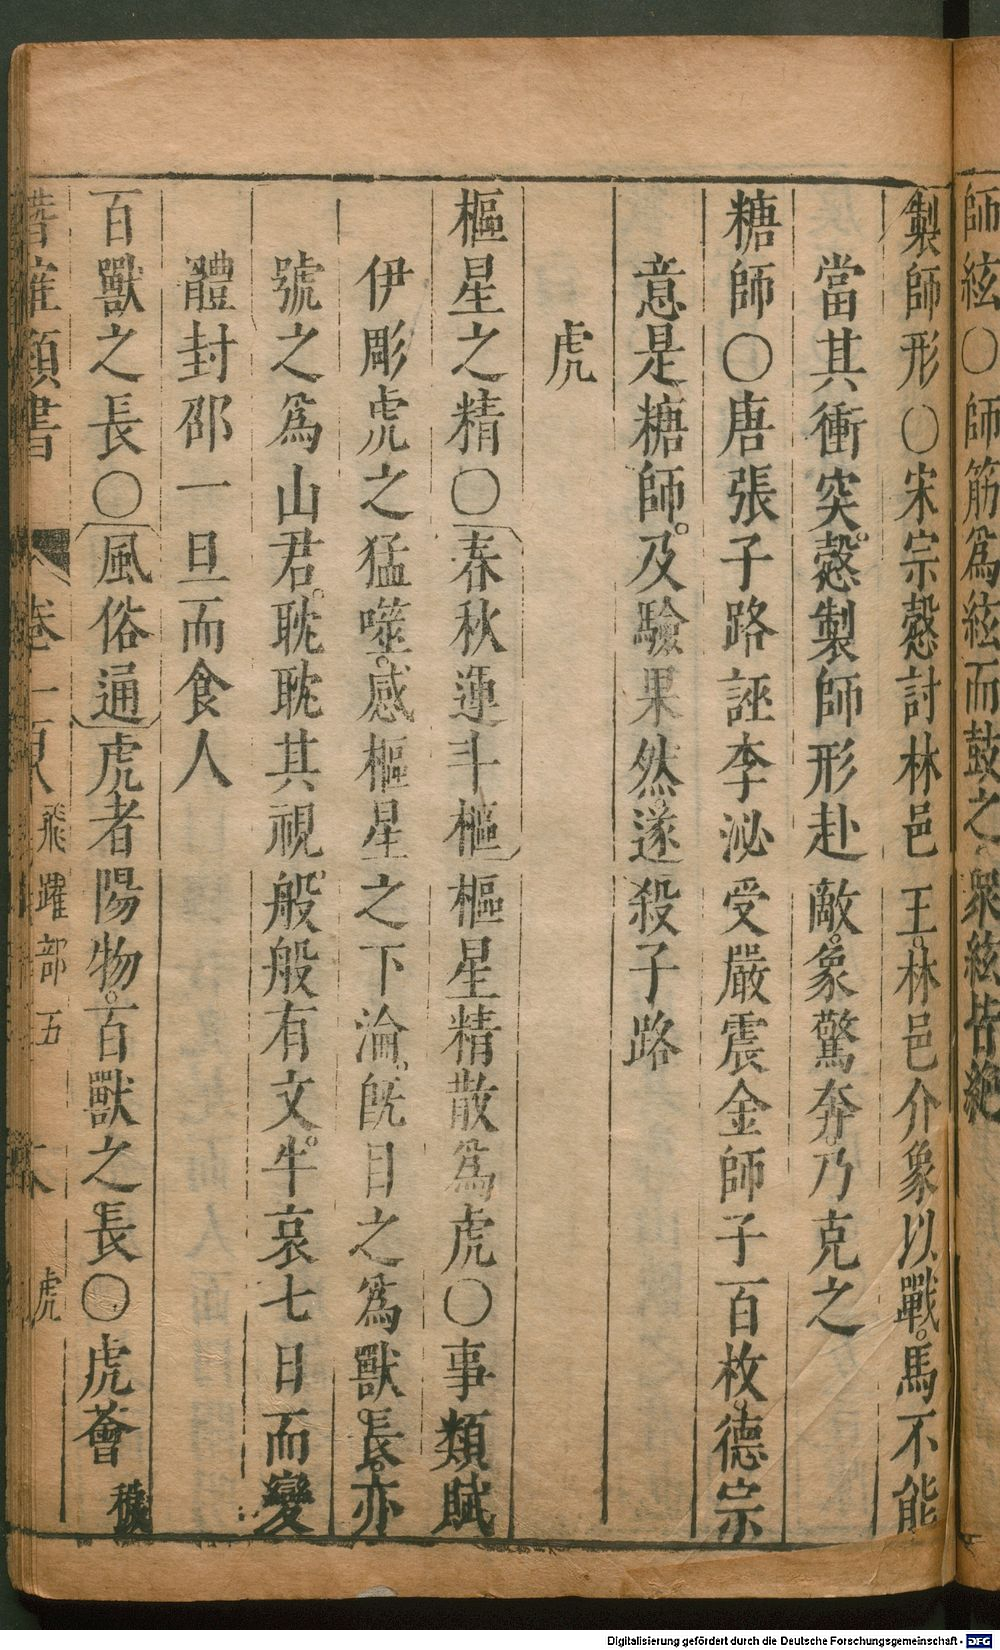 師絃○師筋爲絃而鼓之衆絃皆絶
製師形○宋宗慤討林邑王林邑介象以戰馬不能
當其衝突慤製師形赴敵象驚奔乃克之
糖師○唐張子路誣李泌受嚴震金師子百枚德宗
意是糖師及驗果然遂殺子路
虎
樞星之精○春秋運斗樞樞星精散爲虎○事類賦
伊彫虎之猛噬感樞星之下淪旣目之爲獸長亦
號之爲山君耽耽其視般般有文牛哀七日而變
體封邵一旦而食人
百獸之長○風俗通虎者陽物百獸之長○虎薈
類書 卷一百八 飛躍部五 虎
Digitalisierung gefördert durch die Deutsche Forschungsgemeinschaft - DFG